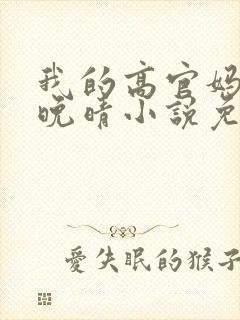 我的高官妈
晚晴小说免
爱失眠的猴子